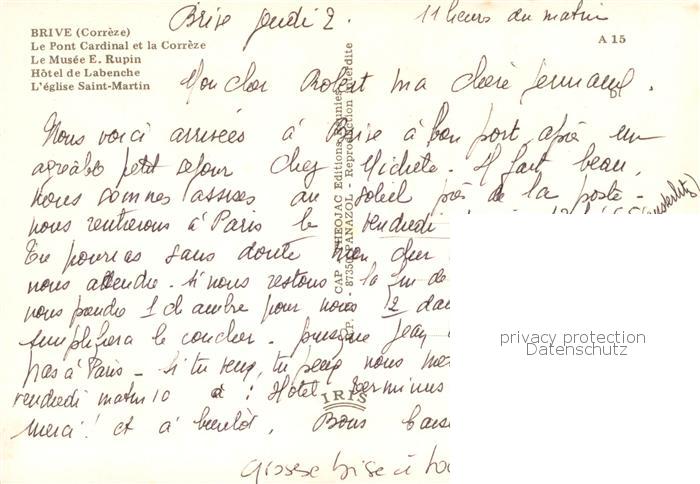 BRIVE (Corrèze)
Le Pont Cardinal et la Corrèze
Le Musée E. Rupin
Hôtel de Labenche
L'église Saint-Martin
A 15
CAP-THEOJAC Editions Réunies
87350 PANAZOL - Reproduction interdite
IRIS
Brive jeudi 2. 11 heures du matin
Mon cher Robert ma chère Germaine.
Nous voici arrivées à Brive à bon port, après un
agréable petit séjour chez Michèle. Il fait beau,
nous sommes assises au soleil près de la poste -
nous rentrerons à Paris le vendredi (Austerlitz)
Tu pourras sans doute nous
nous attendre. Si nous restons la fin de
nous prendre 1 chambre pour nous 2
simplifiera le coucher. puisque Jean
pas à Paris - Si tu veux, tu peux nous
vendredi matin 10 à : Hôtel Terminus
merci ! et à bientôt. Bons
Grosse bise à
privacy protection
Datenschutz